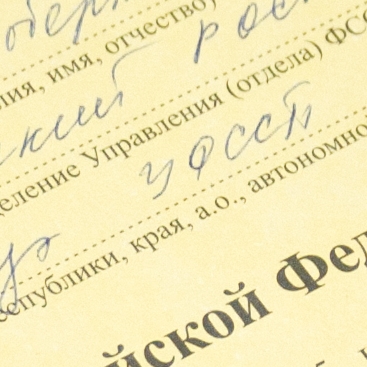 лия, имя, отчество)
кий рос
деление Управления (отдела) ФСС
УФССП
республики, края, а.о., автономно
йской Фед